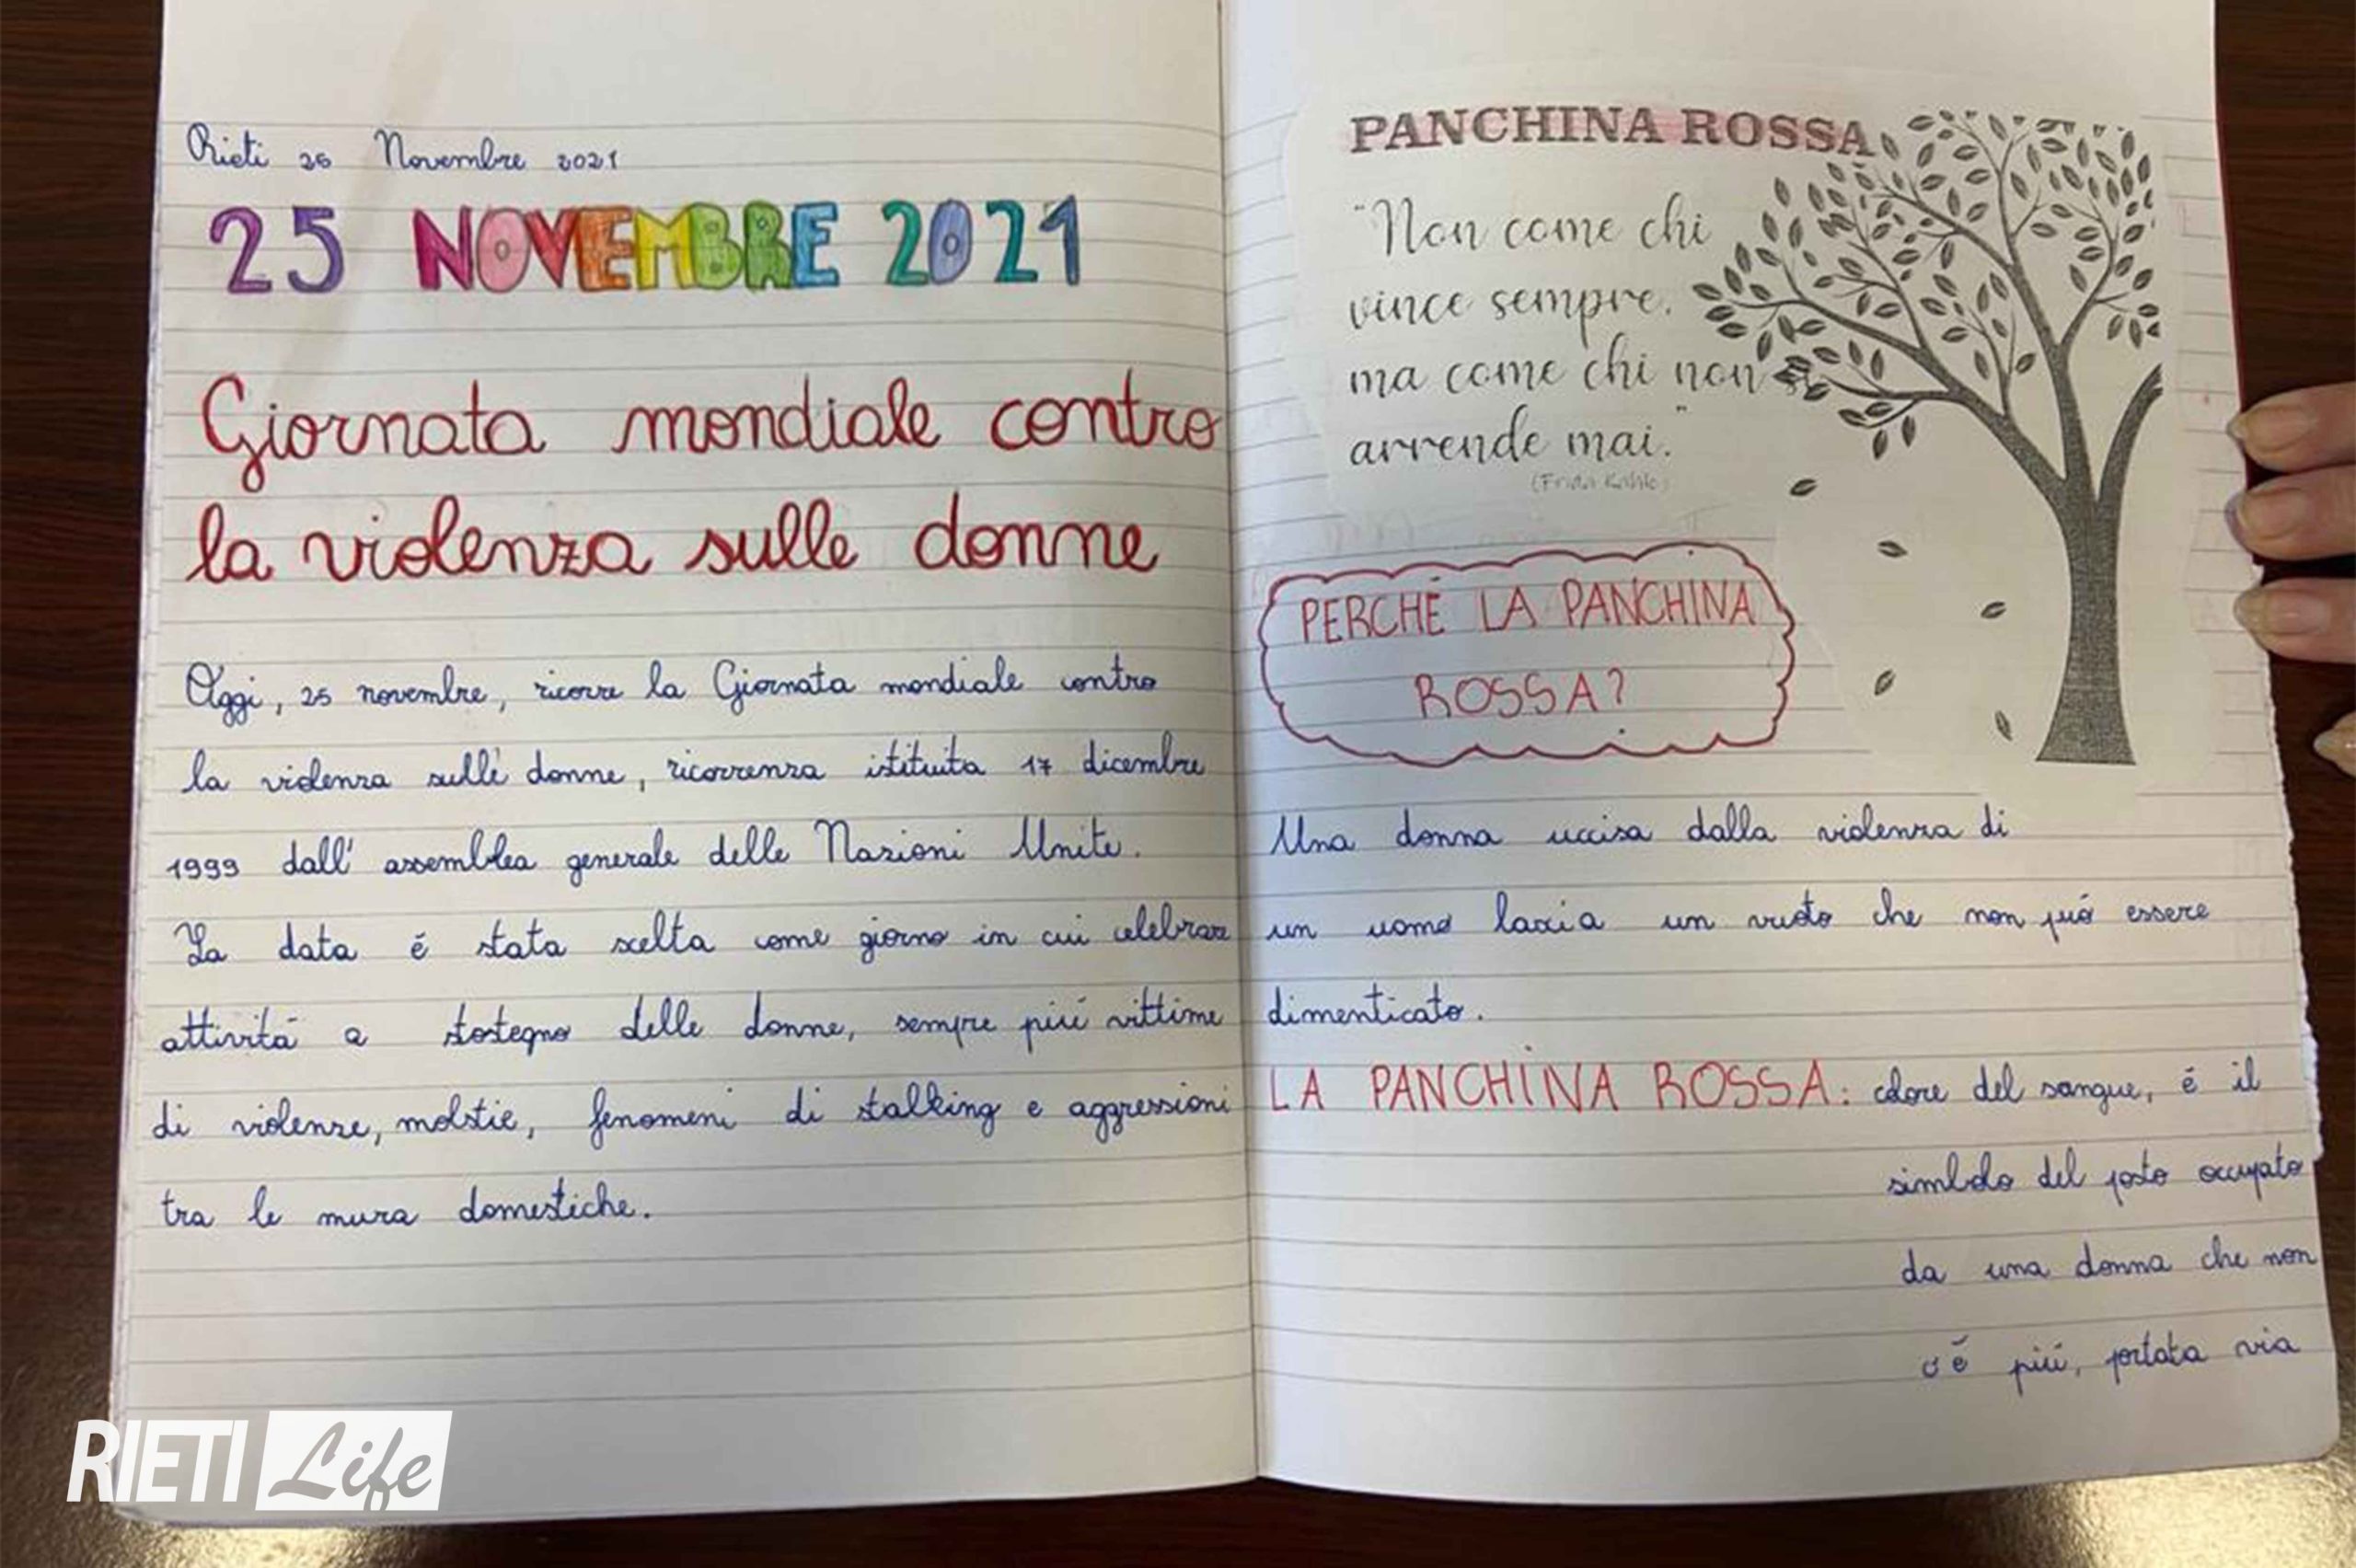 Rieti 26 Novembre 2021
25 NOVEMBRE 2021
Giornata mondiale contro
la violenza sulle donne
Oggi, 25 novembre, ricorre la Giornata mondiale contro
la violenza sulle donne, ricorrenza istituita 17 dicembre
1999 dall' assemblea generale delle Nazioni Unite.
La data é stata scelta come giorno in cui celebrare
attivitá a sostegno delle donne, sempre piú vittime
di violenze, molstie, fenomeni di stalking e aggressioni
tra le mura domestiche.
PANCHINA ROSSA
"Non come chi
vince sempre.
ma come chi non
arrende mai."
(Frida Kahlo)
PERCHÉ LA PANCHINA
ROSSA?
Una donna uccisa dalla violenza di
un uomo lascia un vuoto che non puó essere
dimenticato.
LA PANCHINA ROSSA: colore del sangue, é il
simbolo del posto occupato
da una donna che non
c'é piú, portata via
RIETI Life